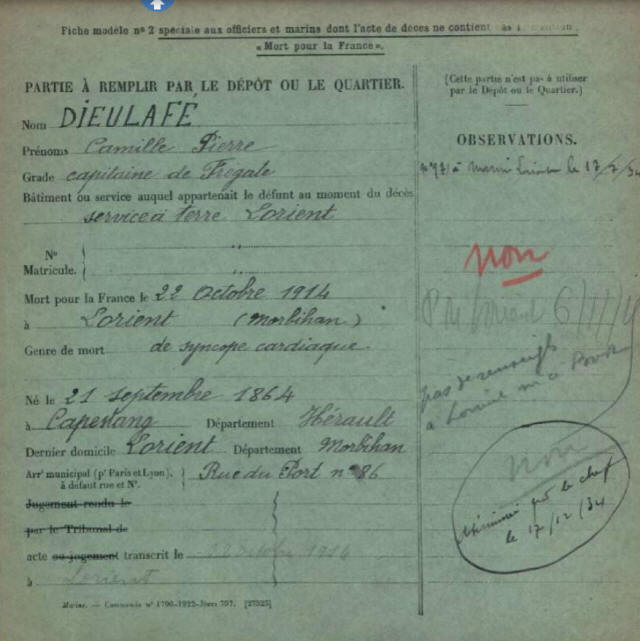 Fiche modèle n° 2 spéciale aux officiers et marins dont l'acte de décès ne contient pas
« Mort pour la France ».
PARTIE À REMPLIR PAR LE DÉPÔT OU LE QUARTIER.
Nom DIEULAFÉ
Prénoms Camille Pierre
Grade capitaine de Frégate
Bâtiment ou service auquel appartenait le défunt au moment du décès
service à terre Lorient
N°
Matricule.
Mort pour la France le 22 Octobre 1914
à Lorient (Morbihan)
Genre de mort de syncope cardiaque
Né le 21 septembre 1864
à Capestang Département Hérault
Dernier domicile Lorient Département Morbihan
Arrt municipal (pr Paris et Lyon), Rue du Port n° 86
à défaut rue et N°.
Jugement rendu le
par le Tribunal de
acte ou jugement transcrit le 22 Octobre 1914
à Lorient
Marine. — Commande n° 1790-1922-Jives 707. [27525]
(Cette partie n'est pas à utiliser
par le Dépôt ou le Quartier.)
OBSERVATIONS.
à Marine Lorient le 17/7/34
non
Lorient 6/11/
pas de renseigts
à Lorient ni à
non
par le chef
le 17/12/34